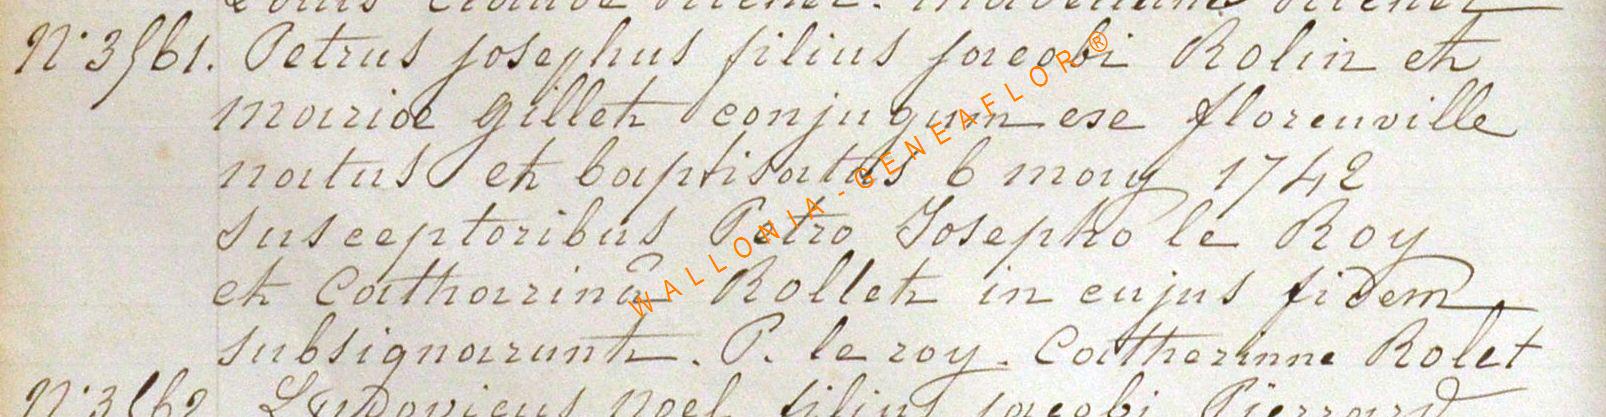 Louis Claude
N° 3561. Petrus josephus filius jacobi Rolin et
mariae gillet conjugum ese florenville
natus et baptisatus 6 may 1742
susceptoribus Petro Josepho le Roy
et Catharinâ Rollet in cujus fidem
subsignarunt. P. le roy. Catherinne Rolet
N° 3562 Ludovicus Noel filius jacobi Pierrard
WALLONIA-GENEAFLOR®